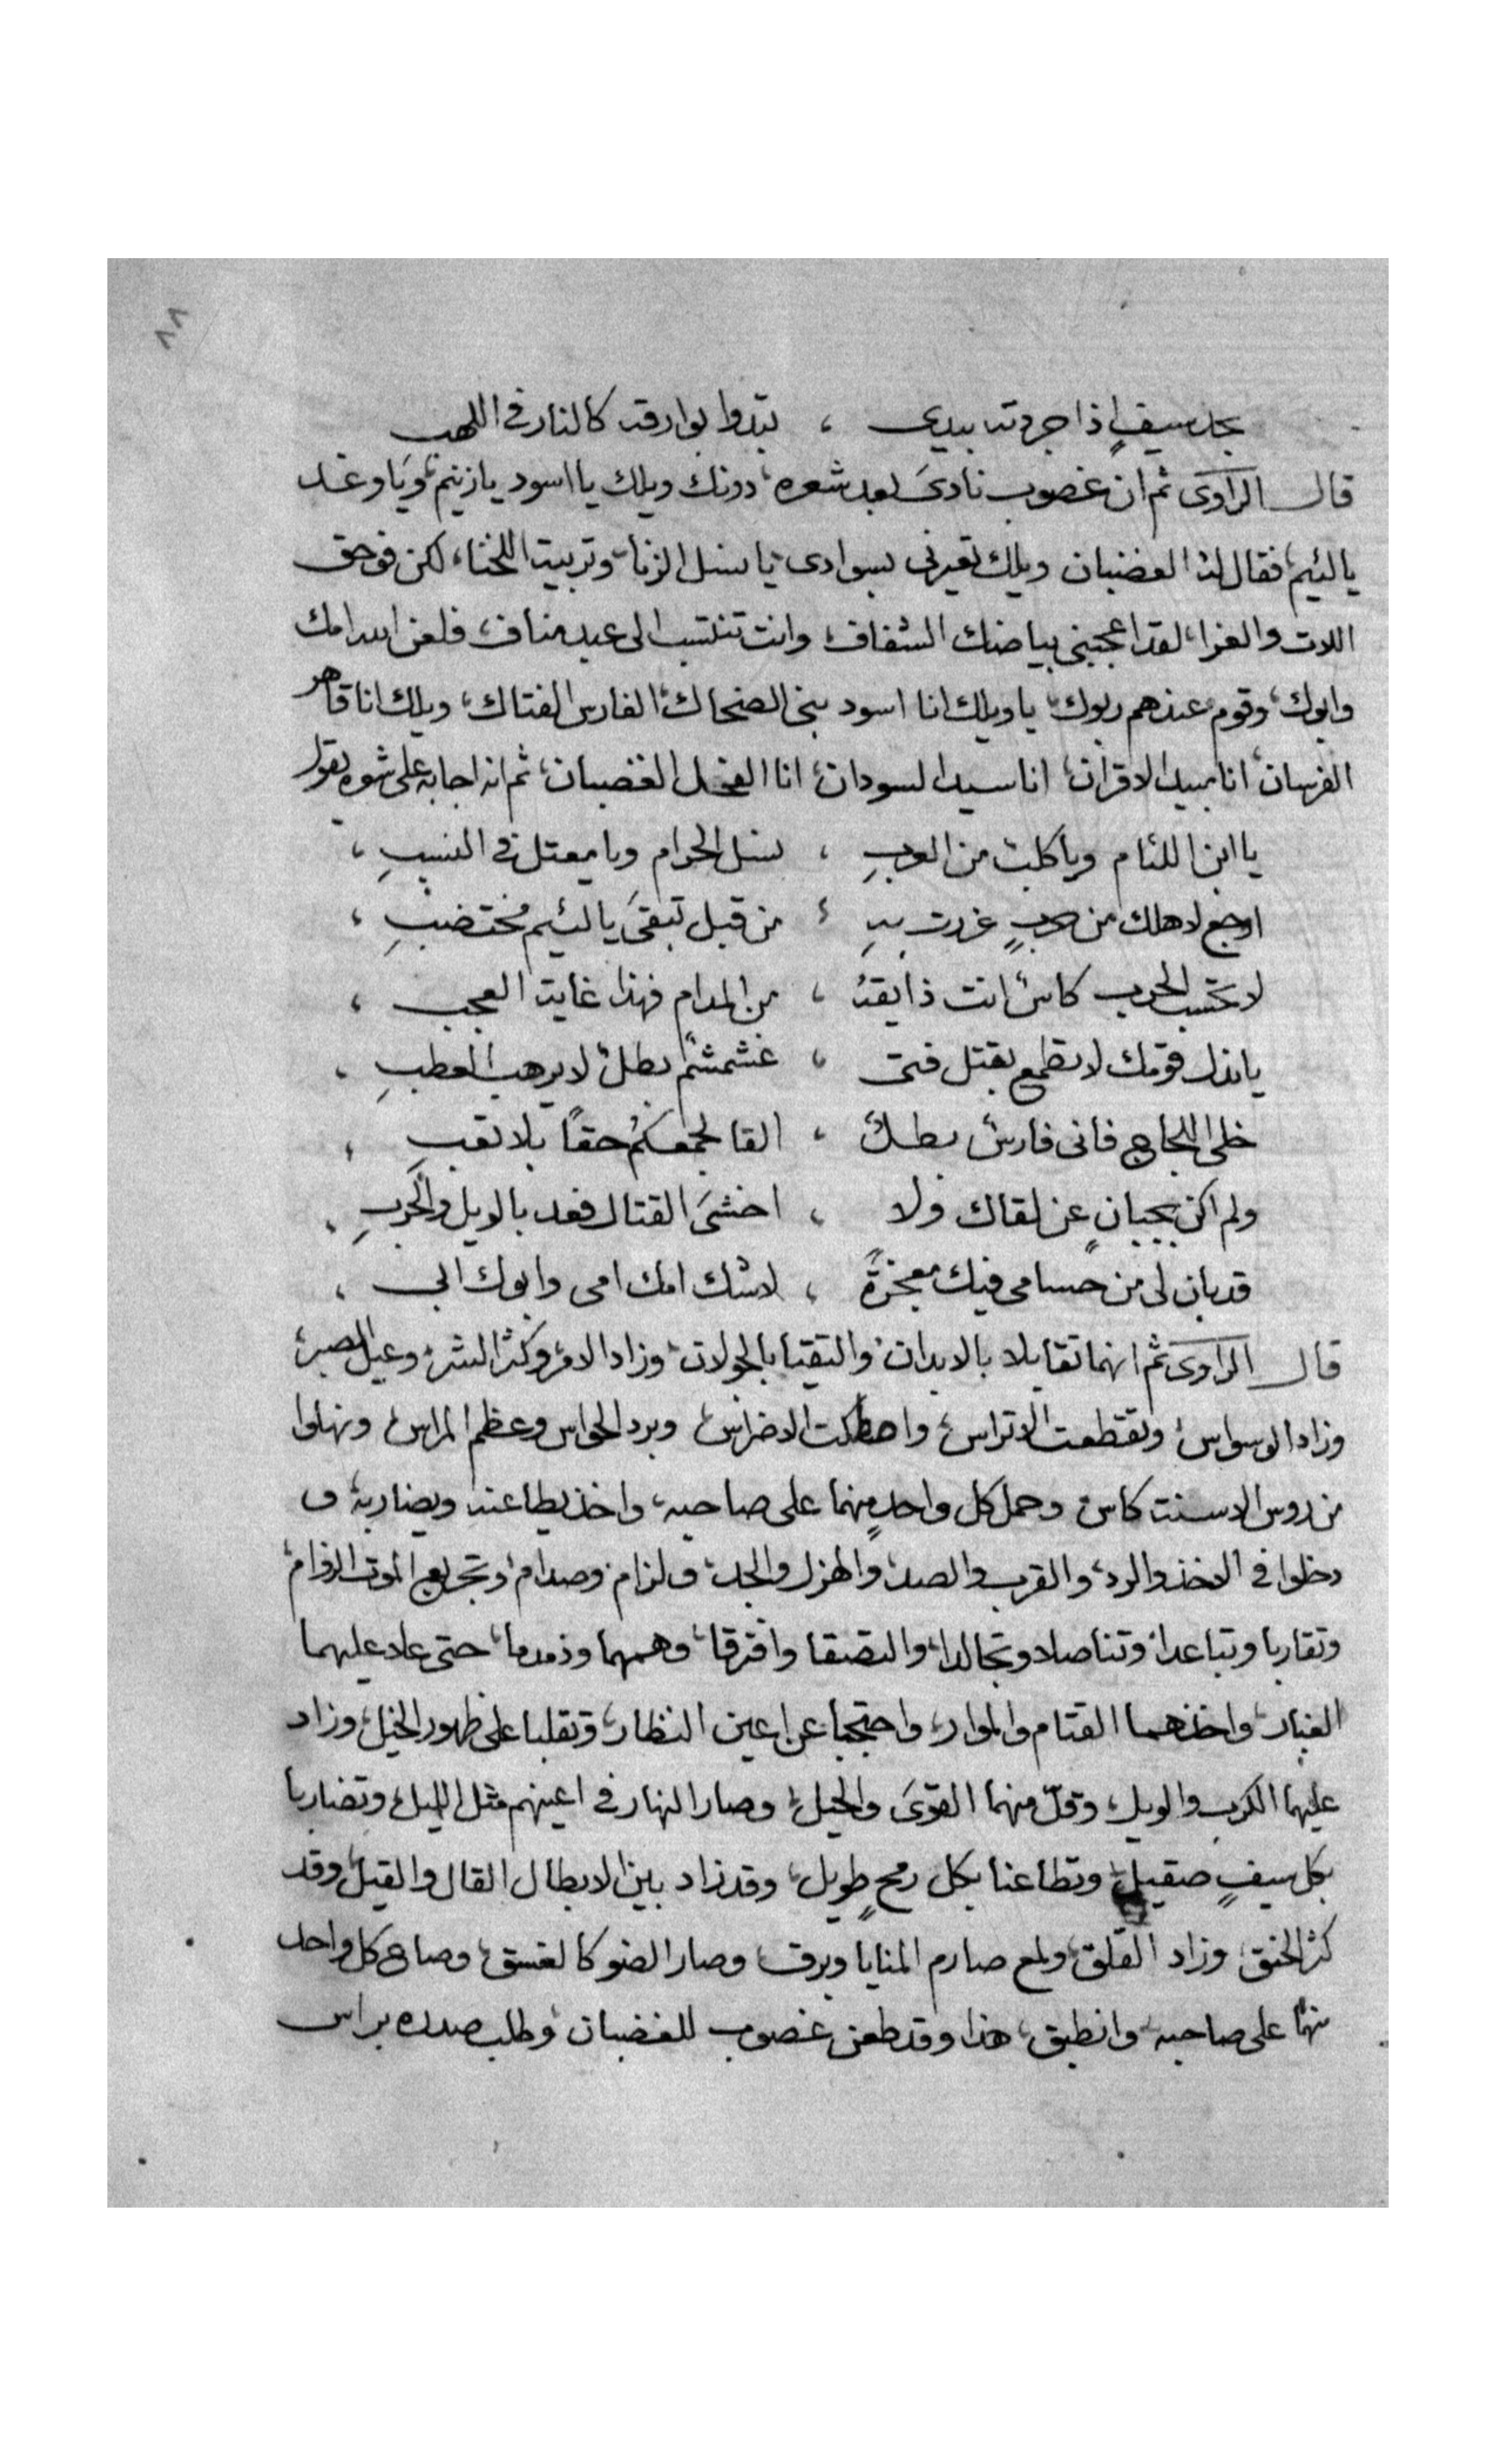 ٨٨
بحد سيفٍ اذا جردته بيدى ، تبدوا بوارقه كالنار فى اللهب
قال الراوى ثم ان غضوب نادىَ بعد شعره، دونك ويلك يا اسود يا زنيم، ويا وغد
يا لئيم، فقال له الغضبان ويلك تعيرنى بسوادى، يا نسل الزنا، وتربيت اللخنا، لكن فوحق
اللات والعزا، لقد اعجبنى بياضك الشفاف، وانت تنتسب الى عبد مناف، فلعن الله امك
وابوك، وقوم عندهم ربوك، يا ويلك انا اسود بنى الضحاك، الفارس الفتاك، ويلك انا قاهر
الفرسان، انا مبيد الاقران، انا سيد السودان، انا الفحل الغضبان، ثم انه اجابه على شعره يقول
يا ابن اللئام ويا كلبٌ من العربِ ، نسل الحرام ويا معتل فى النسبِ ،
ارجع لاهلك من حربٍ غررت بهِ ، من قبل تبقىَ يا لئيم مختضبِ ،
لا تحتسب الحرب كاسٌ انت ذايقهُ ، من المدام فهذا غايت العجب ،
يا نذل قومك لا تطمع بقتل فتى ، غشمشمٌ بطلٌ لا يرهب العطبِ ،
خلى اللجاج فانى فارسٌ بطلٌ ، القا لجمعكمُ حقاً بلا تعب ،
ولم اكن بجبانٍ عن لقاك ولا ، اخشىَ القتال فعد بالويل والحَربِ ،
قد بان لى من حسامى فيك معجزةً ، لا شك امك امى وابوك ابى ،
قال الراوى ثم انهما تقابلا بالابدان، والتقيا بالجولان، وزاد الامر وكثر الشر، وعيل الصبر،
وزاد الوسواس، وتقطعت الاتراس، واصطكت الاضراس، وبرد الحواس وعظم المراس، ونهلوا
من روس الاسنت كاس، وحمل كل واحدٍ منهما على صاحبه، واخذ يطاعنه ويضاربه، و
دخلوا فى الاخذ والرد، والقرب والصد، والهزل والجد، ولزام وصدام، وتجريع الموت الزوام،
وتقاربا وتباعدا، وتناصلا وتجالدا، والتصقا وافترقا، وهمهما وذمدما، حتى علا عليهما
الغبار، واخذهما القتام والموار، واحتجبا عن اعين النظار، وتقلبا على ظهور الخيل، وزاد
عليهما الكرب والويل، وقلّ منهما القوىَ والحيل، وصار النهار فى اعينهم مثل الليل، وتضاربا
بكل سيفٍ صقيل، وتطاعنا بكل رمحٍ طويل، وقد زاد بين الابطال القال والقيل، وقد
كثر الحنق، وزاد القلق، ولمع صارم المنايا وبرق، وصار الضو كالغسق، وصاح كل واحد
منهما على صاحبه، وانطبق، هذا وقد طعن غضوب للغضبان، وطلب صدره براس